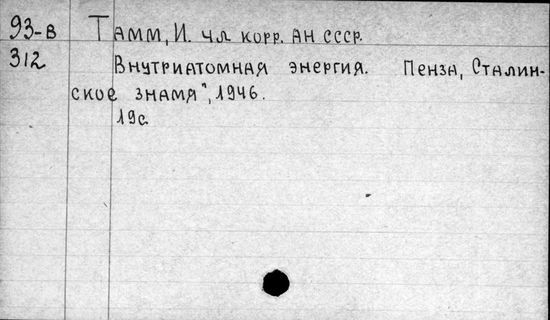 93-в Тамм, И. чл корр. АН СССР.
312 Внутриатомная энергия. Пенза, Сталин-
ское знамя", 1946.
19с.